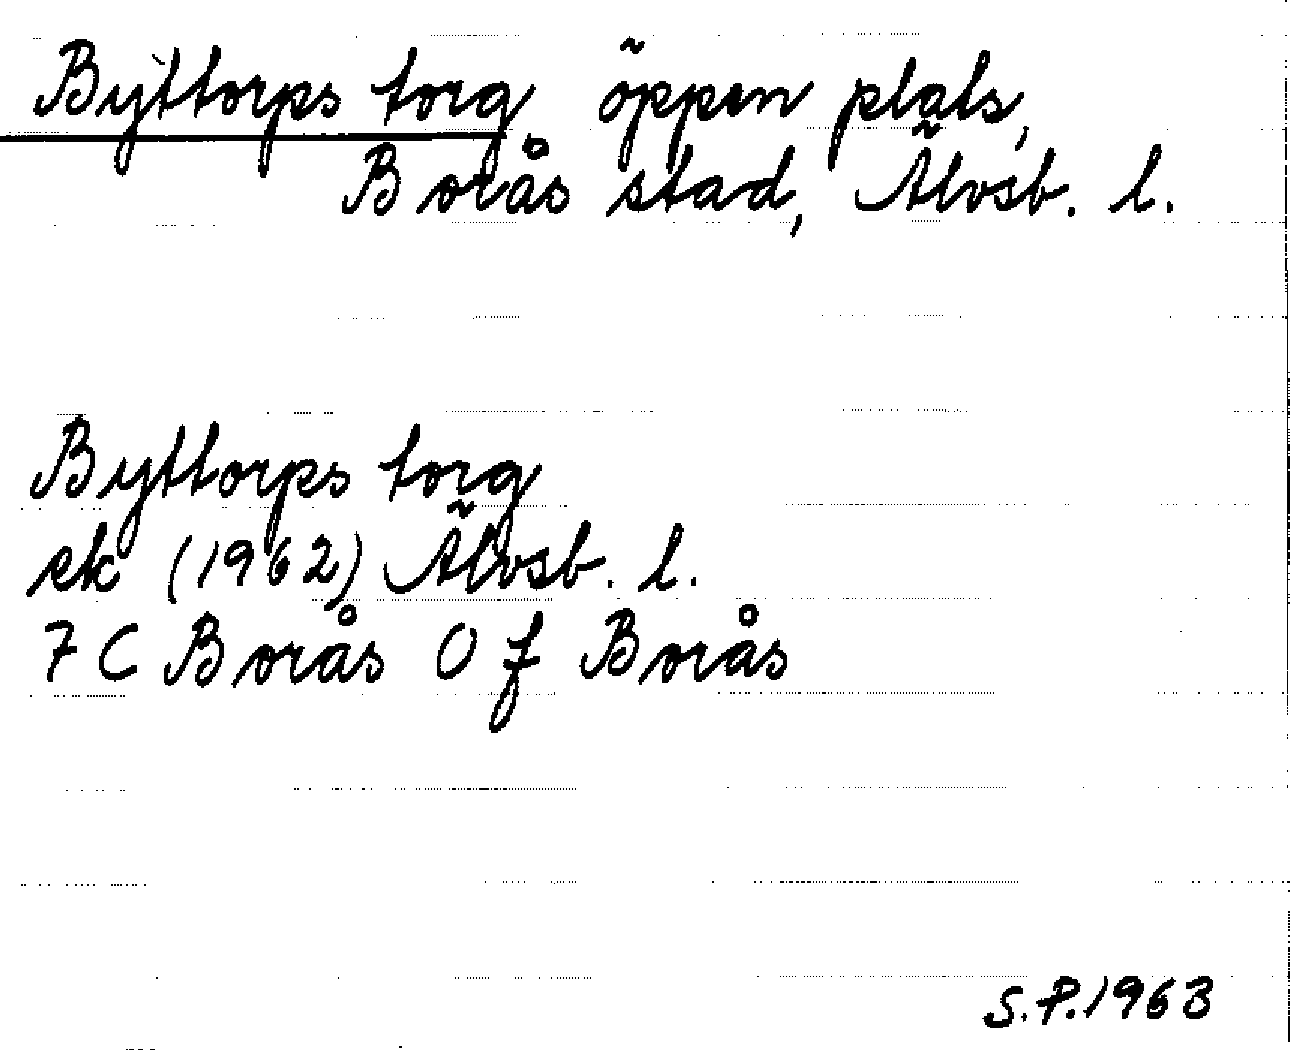 Byttorps torg öppen plats,
Borås stad, Älvsb. l.
Byttorps torg
ek (1962) Älvsb. l.
7 C Borås O f Borås
S.P.1963